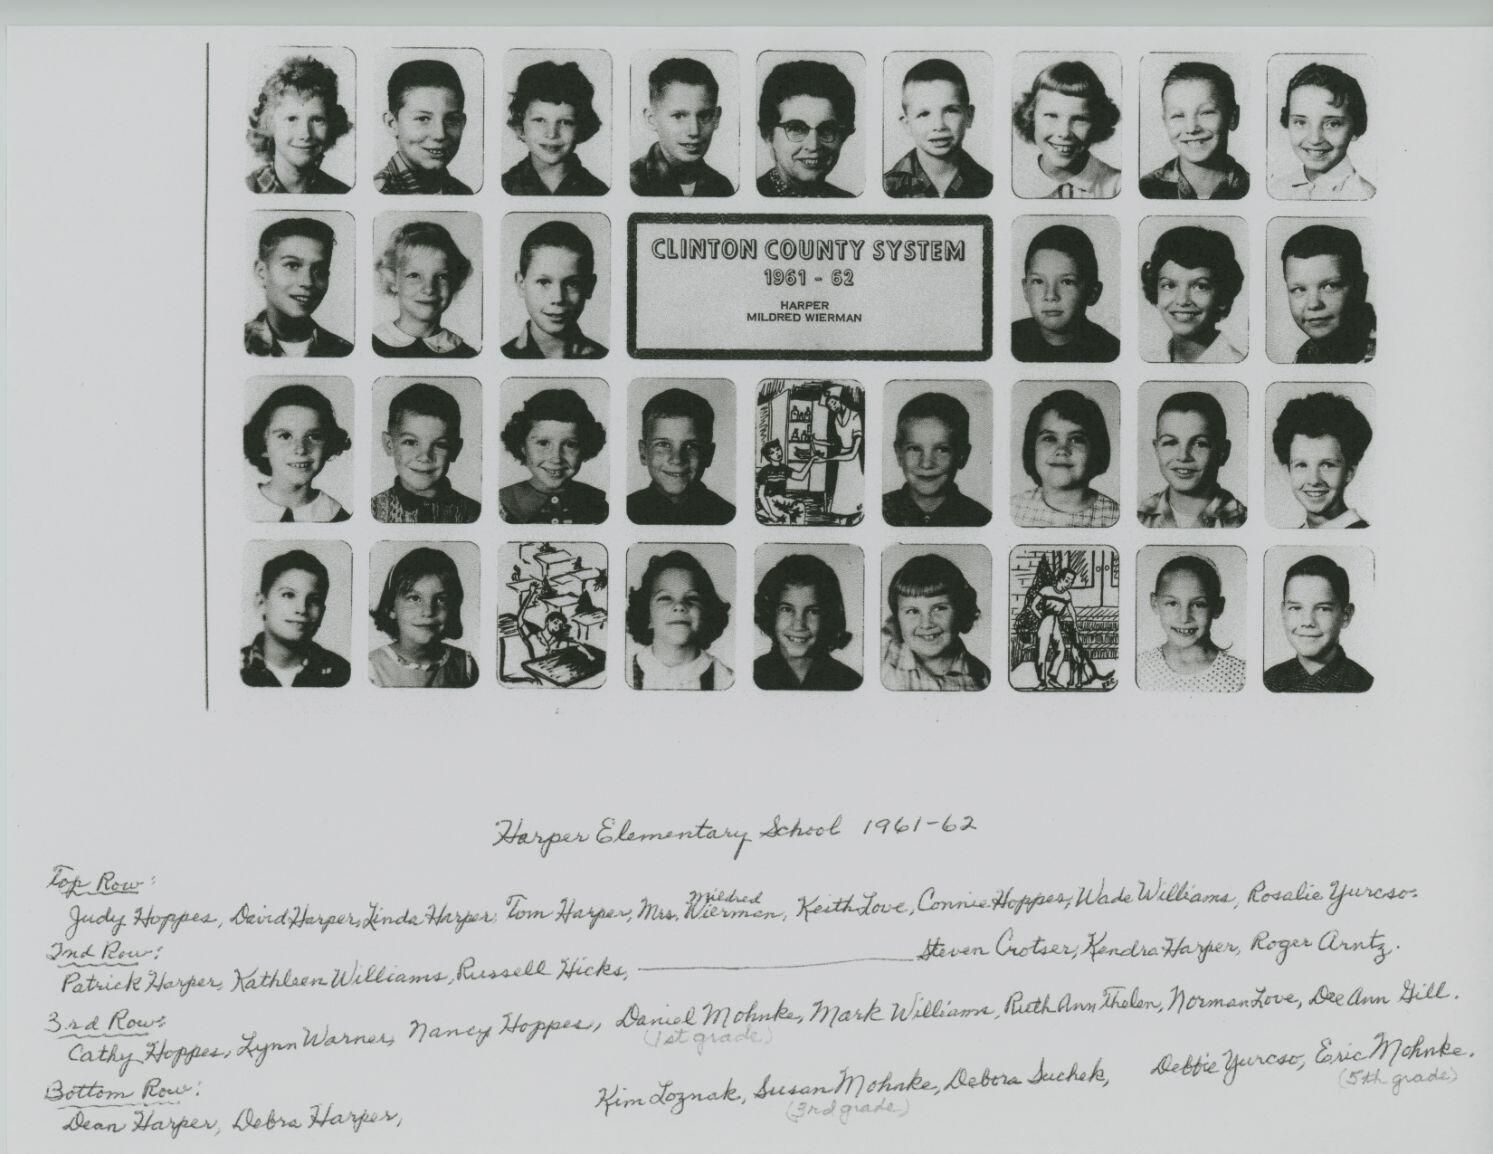 CLINTON COUNTY SYSTEM
1961 - 62
HARPER
MILDRED WIERMAN
Harper Elementary School 1961-62
Top Row:
Judy Hoppes, David Harper, Linda Harper, Tom Harper, Mrs. Mildred Wierman, Keith Love, Connie Hoppes, Wade Williams, Rosalie Yurcso.
2nd Row:
Patrick Harper, Kathleen Williams, Russell Hicks, Steven Crotser, Kendra Harper, Roger Arntz.
3rd Row:
Cathy Hoppes, Lynn Warner, Nancy Hoppes, Daniel Mohnke, Mark Williams, Ruth Ann Thelen, Norman Love, Dee Ann Gill.
(1st grade)
Bottom Row:
Dean Harper, Debra Harper, Kim Loznak, Susan Mohnke, Debora Suchek, Debbie Yurcso, Eric Mohnke.
(3rd grade) (5th grade)